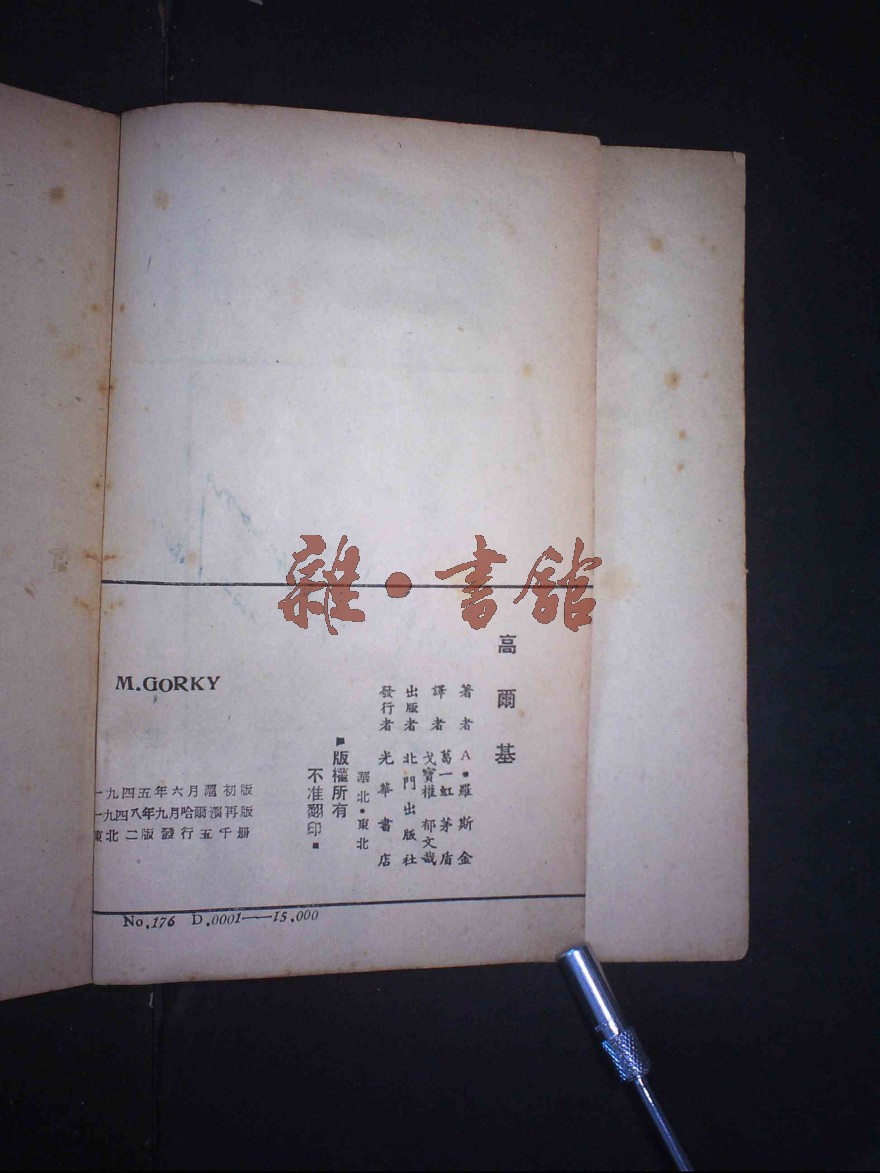 雜·書舘
高爾基
著者 A·羅斯金
譯者 葛一虹 茅盾
戈寶權 郁文哉
出版者 北門出版社
發行者 光華書店
華北·東北
■版權所有
不准翻印■
M.GORKY
一九四五年六月滬初版
一九四八年九月哈爾濱再版
東北二版發行五千册
No.176 D.0001——15.000